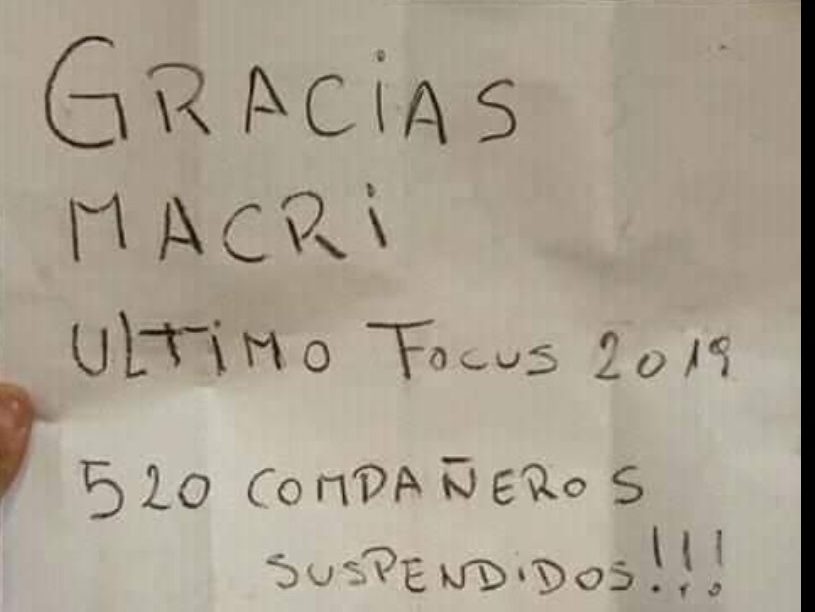 GRACIAS
MACRI
ULTIMO FOCUS 2019
520 COMPAÑEROS
SUSPENDIDOS!!!